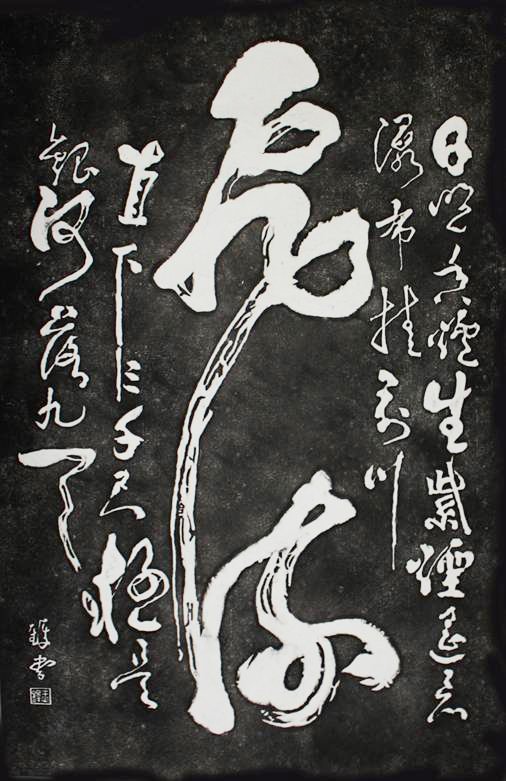 日照香爐生紫煙遙看
瀑布挂前川
飛流
直下三千尺疑是
銀河落九天
鐸書